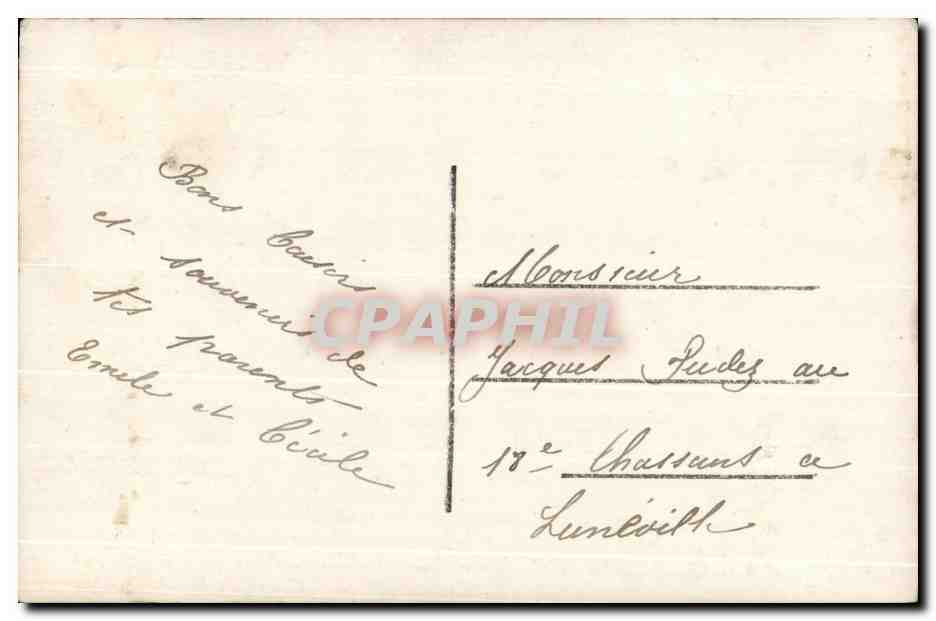 Bons baisirs
et souvenirs de
tes parents
Emele et Cécile
Monsieur
Jacques Pudez au
18e Chasseurs a
Lunéville
CPAPHIL